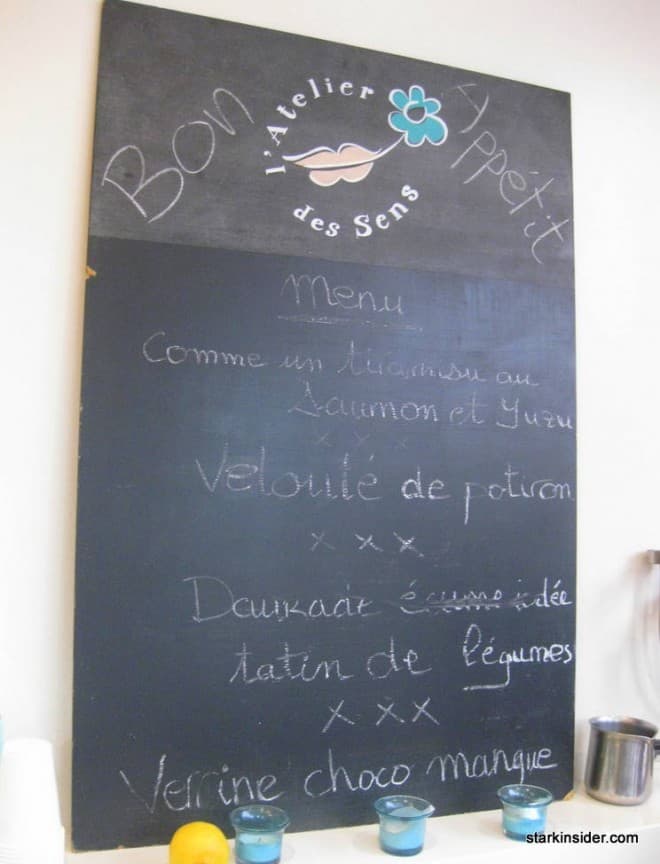 Bon Appétit
l'Atelier
des Sens
Menu
Comme un tiramisu au
Saumon et Yuzu
x x x
Velouté de potiron
x x x
idée
tatin de légumes
x x x
Verrine choco mangue
starkinsider.com